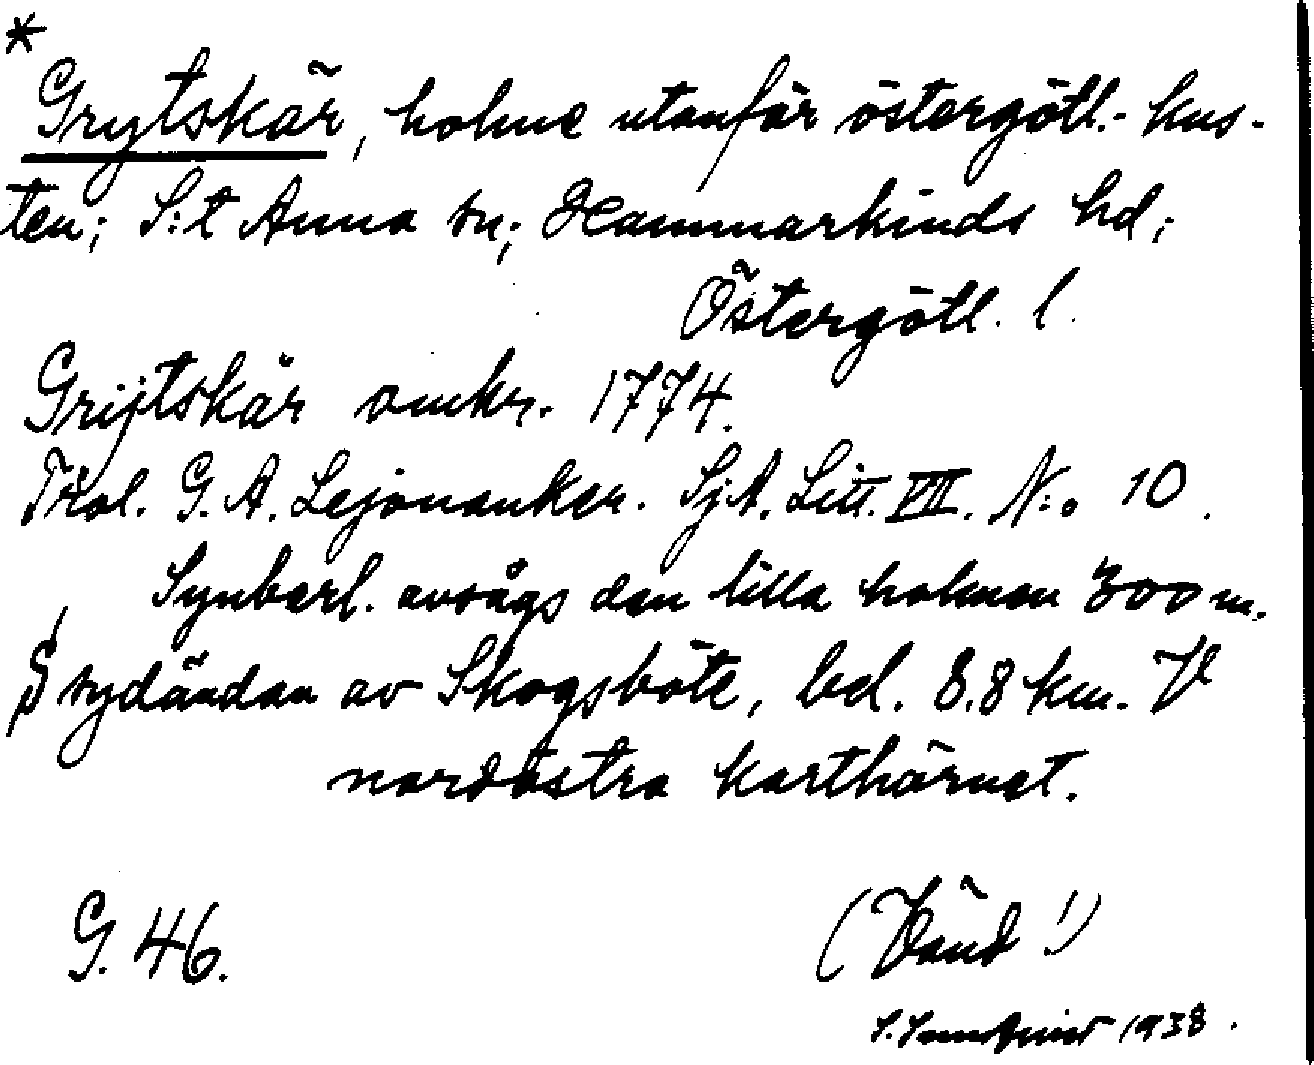 *
Grytskär, holme utanför östergötl.- kus-
ten; S:t Anna sn; Hammarkinds hd;
Östergötl. l.
Grijtskär omkr. 1774.
Trol. G. A. Lejonanker. Sj.A. Litt. VIII. N:o 10.
Synbarl. avsågs den lilla holmen 300 m.
S sydändan av Skogsböte, bel. 8.8 km. V
nordöstra karthörnet.
G. 46.
(Vänd!)
1938.